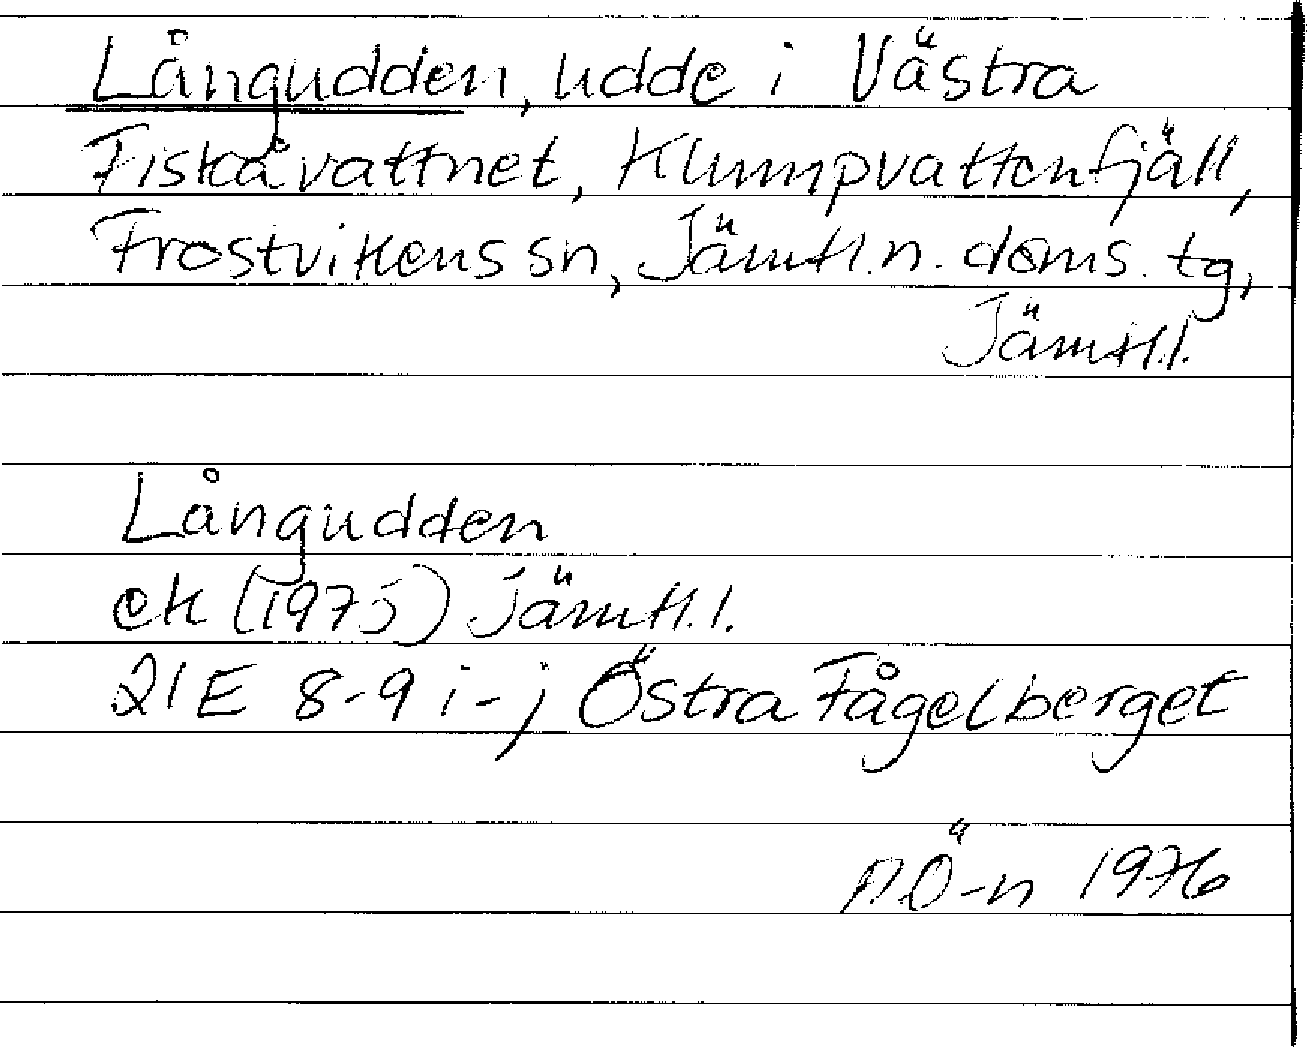 Långudden, udde i Västra
Fiskåvattnet, Klumpvattenfjäll,
Frostvikens sn, Jämtl. n. doms. tg,
Jämtl. l.
Långudden
ek (1975) Jämtl. l.
21E 8-9 i-j Östra Fågelberget
P.Ö-n 1976